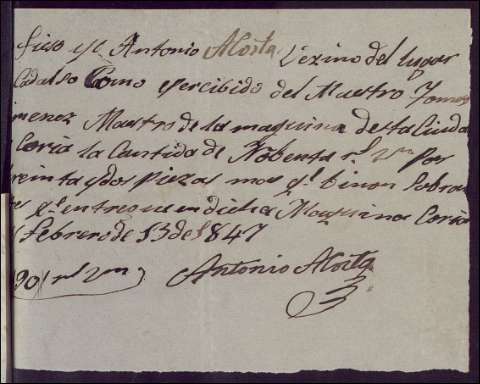 fieso yo Antonio Acosta Vezino del lugar
Cadalso Como e Percibido del Maestro Tomas
imenez Maestro de la maquina desta Ciuda
Coria la Cantida de Nobenta rs. Vn. Por
treinta y dos Piezas mas qe. binon Sobra
qe. entregue en dicha Maquina Coria
Febrero de 13 de 1847
90 rs. Vn.
Antonio Acosta